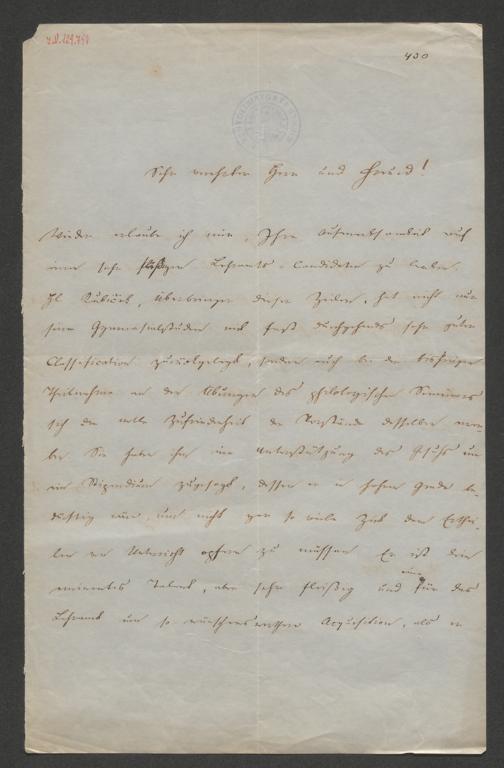 430
Sehr verehrter Herr und Freund!
Wieder erlaube ich mir, Ihre Aufmerksamkeit auf
einen sehr fleißigen Lehramts-Candidaten zu lenken.
H. Überbringer dieser Zeilen, hat nicht nur
seine Gymnasialstudien mit fast durchgehends sehr guter
Classification zurückgelegt, sondern auch bei der bisherigen
Theilnahme an den Übungen des philologischen Seminares
sich die volle Zufriedenheit der Vorstände desselben erwor-
ben. Sie haben ihm eine Unterstützung des Gesuchs um
ein Stipendium zugesagt, dessen er in hohem Grade be-
dürftig wäre, um nicht gar so viele Zeit dem Erthei-
len von Unterricht opfern zu müssen. Er ist kein
eminentes Talent, aber sehr fleißig und für das
eine
Lehramt um so wünschenswerthere Acquisition, als er